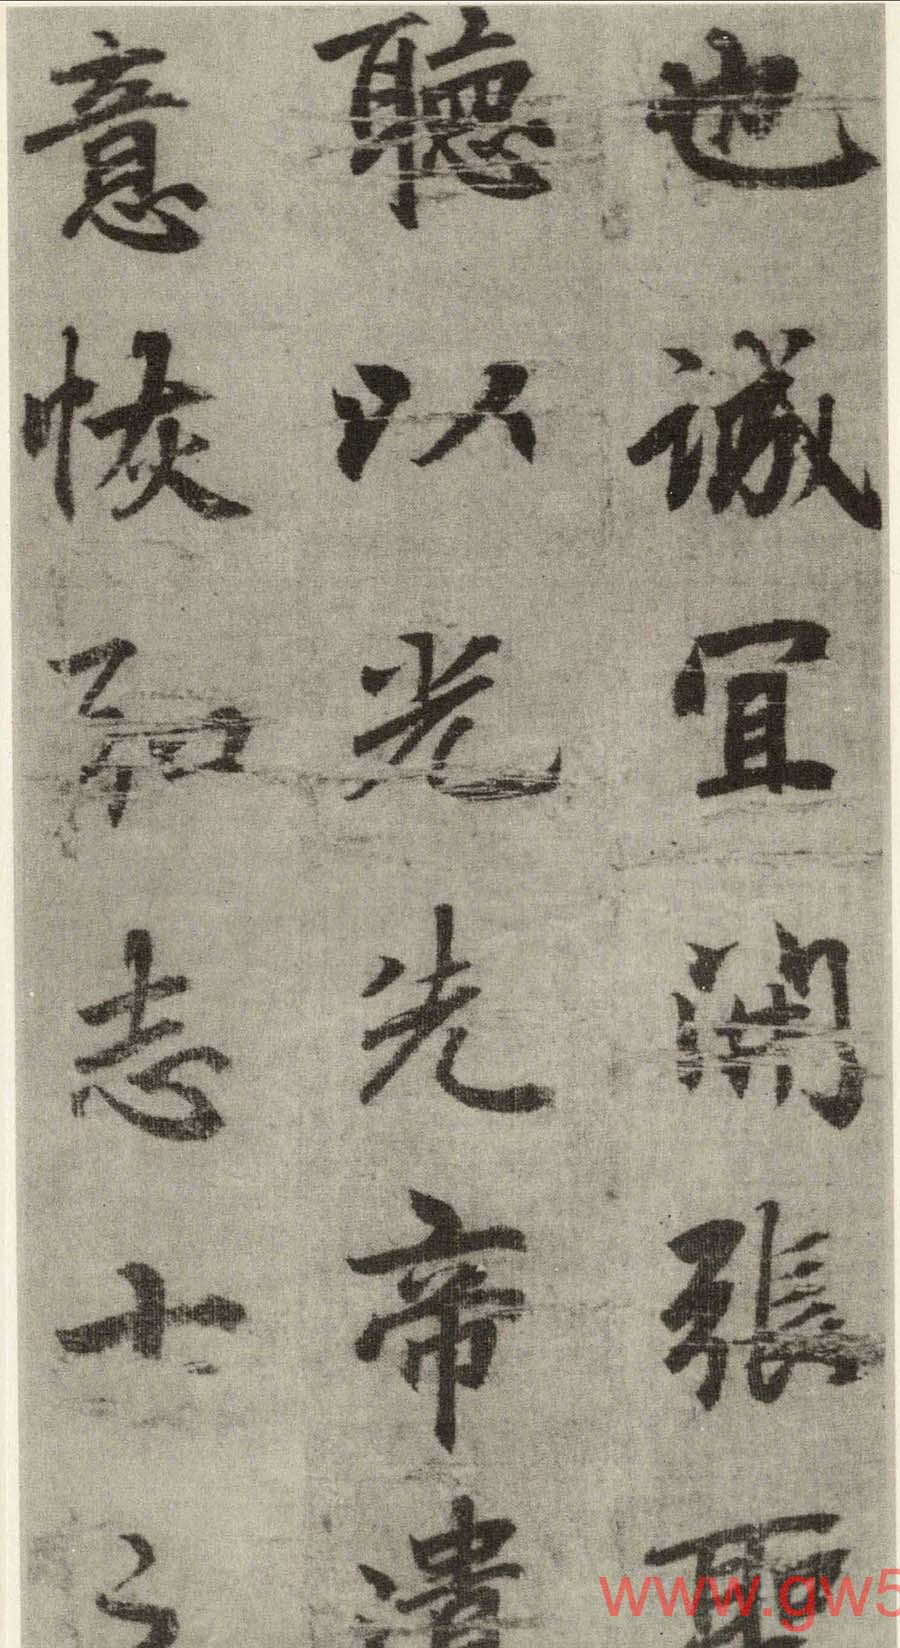 也誠宜開張聖
聽以光先帝遺
意恢弘志士之
www.gw5